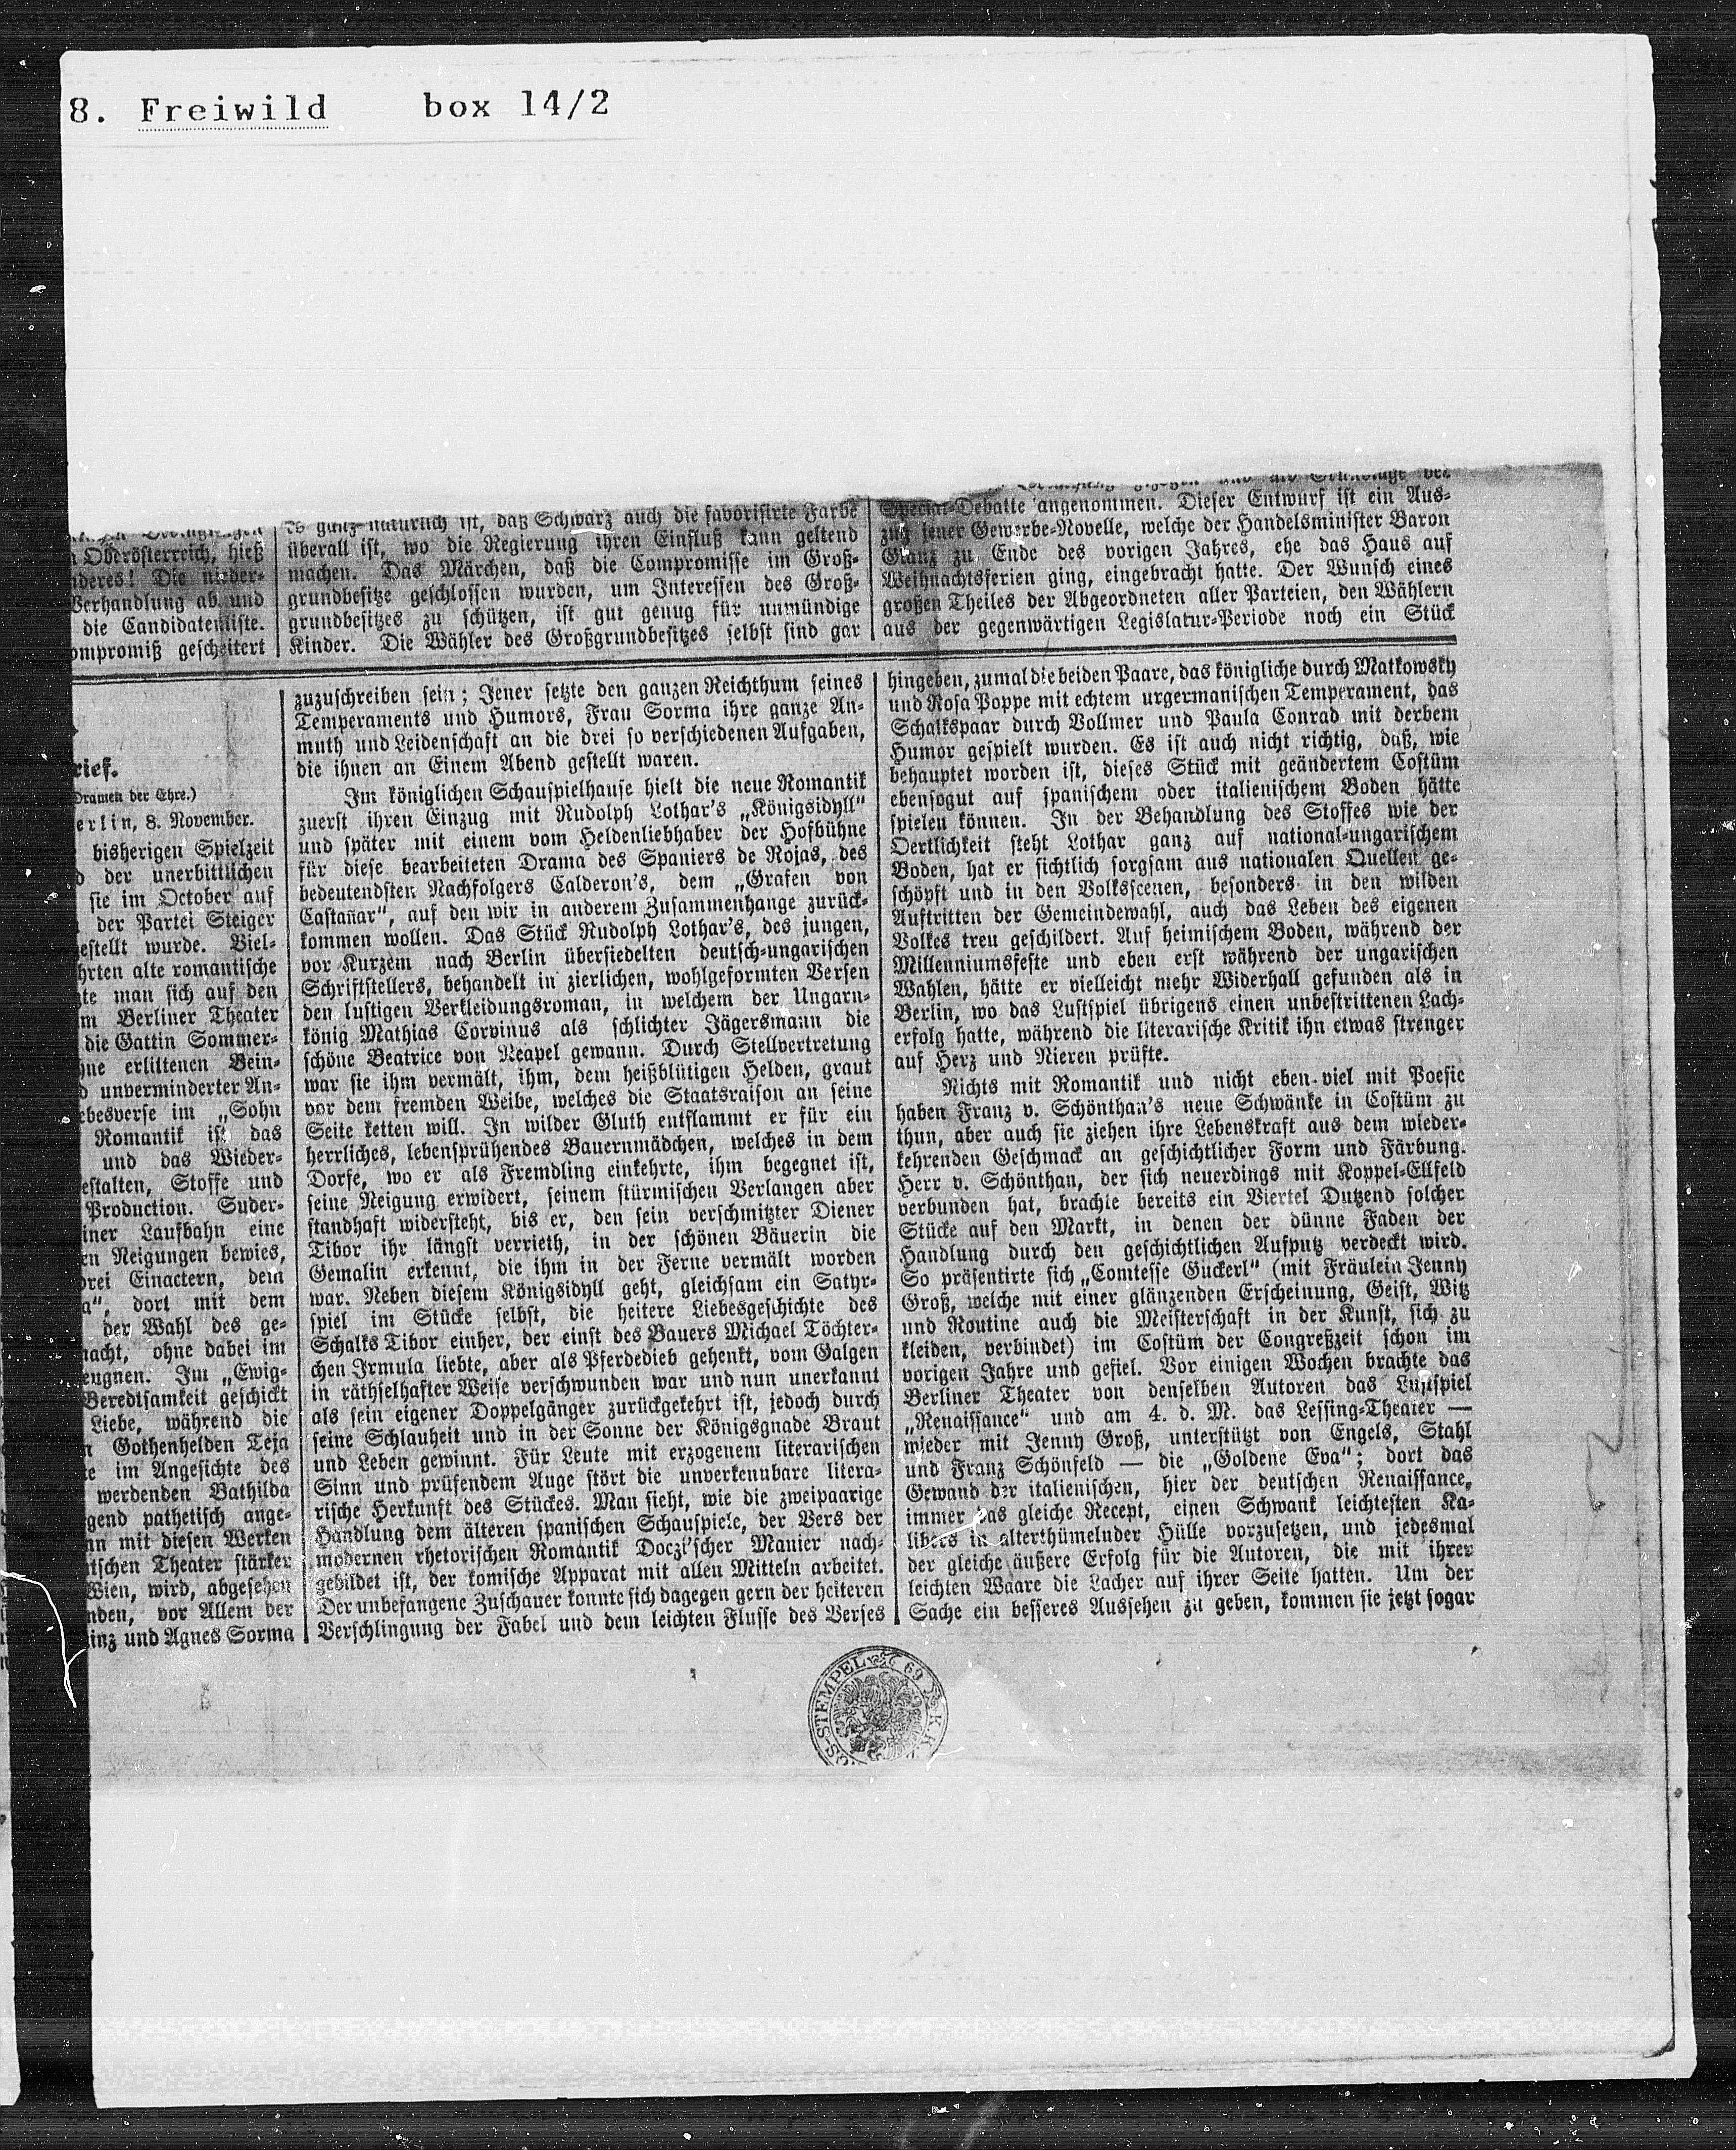 8. Freiwild box 14/2
n Oberösterreich, hieß
nderes! Die nieder-
Verhandlung ab und
die Candidatenliste.
ompromiß gescheitert
ganz natürlich ist, daß Schwarz auch die favorisirte Farbe
überall ist, wo die Regierung ihren Einfluß kann geltend
machen. Das Märchen, daß die Compromisse im Groß-
grundbesitze geschlossen wurden, um Interessen des Groß-
grundbesitzes zu schützen, ist gut genug für unmündige
Kinder. Die Wähler des Großgrundbesitzes selbst sind gar
Special-Debatte angenommen. Dieser Entwurf ist ein Aus-
zug jener Gewerbe-Novelle, welche der Handelsminister Baron
Glanz zu Ende des vorigen Jahres, ehe das Haus auf
Weihnachtsferien ging, eingebracht hatte. Der Wunsch eines
großen Theiles der Abgeordneten aller Parteien, den Wählern
aus der gegenwärtigen Legislatur-Periode noch ein Stück
rief.
Dramen der Ehre.)
erlin, 8. November.
bisherigen Spielzeit
d der unerbittlichen
sie im October auf
der Partei Steiger
estellt wurde. Viel-
hrten alte romantische
te man sich auf den
m Berliner Theater
die Gattin Sommer-
hne erlittenen Bein-
d unverminderter An-
ebesverse im „Sohn
Romantik ist das
und das Wieder-
estalten, Stoffe und
Production. Suder-
iner Laufbahn eine
en Neigungen bewies,
drei Einactern, dem
a“, dort mit dem
der Wahl des ge-
macht, ohne dabei im
eugnen. Im „Ewig-
Beredtsamkeit geschickt
Liebe, während die
n Gothenhelden Teja
te im Angesichte des
werdenden Bathilda
gend pathetisch ange-
nn mit diesen Werken
utschen Theater stärker
Wien, wird, abgesehen
nden, vor Allem der
inz und Agnes Sorma
zuzuschreiben sein; Jener setzte den ganzen Reichthum seines
Temperaments und Humors, Frau Sorma ihre ganze An-
muth und Leidenschaft an die drei so verschiedenen Aufgaben,
die ihnen an Einem Abend gestellt waren.
Im königlichen Schauspielhause hielt die neue Romantik
zuerst ihren Einzug mit Rudolph Lothar's „Königsidyll“
und später mit einem vom Heldenliebhaber der Hofbühne
für diese bearbeiteten Drama des Spaniers de Rojas, des
bedeutendsten Nachfolgers Calderon's, dem „Grafen von
Castañar“, auf den wir in anderem Zusammenhange zurück-
kommen wollen. Das Stück Rudolph Lothar's, des jungen,
vor Kurzem nach Berlin übersiedelten deutsch-ungarischen
Schriftstellers, behandelt in zierlichen, wohlgeformten Versen
den lustigen Verkleidungsroman, in welchem der Ungarn-
könig Mathias Corvinus als schlichter Jägersmann die
schöne Beatrice von Neapel gewann. Durch Stellvertretung
war sie ihm vermält, ihm, dem heißblütigen Helden, graut
vor dem fremden Weibe, welches die Staatsraison an seine
Seite ketten will. In wilder Gluth entflammt er für ein
herrliches, lebensprühendes Bauernmädchen, welches in dem
Dorfe, wo er als Fremdling einkehrte, ihm begegnet ist,
seine Neigung erwidert, seinem stürmischen Verlangen aber
standhaft widersteht, bis er, den sein verschmitzter Diener
Tibor ihr längst verrieth, in der schönen Bäuerin die
Gemalin erkennt, die ihm in der Ferne vermält worden
war. Neben diesem Königsidyll geht, gleichsam ein Satyr-
spiel im Stücke selbst, die heitere Liebesgeschichte des
Schalks Tibor einher, der einst des Bauers Michael Töchter-
chen Irmula liebte, aber als Pferdedieb gehenkt, vom Galgen
in räthselhafter Weise verschwunden war und nun unerkannt
als sein eigener Doppelgänger zurückgekehrt ist, jedoch durch
seine Schlauheit und in der Sonne der Königsgnade Braut
und Leben gewinnt. Für Leute mit erzogenem literarischen
Sinn und prüfendem Auge stört die unverkennbare litera-
rische Herkunft des Stückes. Man sieht, wie die zweipaarige
Handlung dem älteren spanischen Schauspiele, der Vers der
modernen rhetorischen Romantik Doczi'scher Manier nach-
gebildet ist, der komische Apparat mit allen Mitteln arbeitet.
Der unbefangene Zuschauer konnte sich dagegen gern der heiteren
Verschlingung der Fabel und dem leichten Flusse des Verses
hingeben, zumal die beiden Paare, das königliche durch Matkowsky
und Rosa Poppe mit echtem urgermanischen Temperament, das
Schalkspaar durch Vollmer und Paula Conrad mit derbem
Humor gespielt wurden. Es ist auch nicht richtig, daß, wie
behauptet worden ist, dieses Stück mit geändertem Costüm
ebensogut auf spanischem oder italienischem Boden hätte
spielen können. In der Behandlung des Stoffes wie der
Oertlichkeit steht Lothar ganz auf national-ungarischem
Boden, hat er sichtlich sorgsam aus nationalen Quellen ge-
schöpft und in den Volksscenen, besonders in den wilden
Auftritten der Gemeindewahl, auch das Leben des eigenen
Volkes treu geschildert. Auf heimischem Boden, während der
Millenniumsfeste und eben erst während der ungarischen
Wahlen, hätte er vielleicht mehr Widerhall gefunden als in
Berlin, wo das Lustspiel übrigens einen unbestrittenen Lach-
erfolg hatte, während die literarische Kritik ihn etwas strenger
auf Herz und Nieren prüfte.
Nichts mit Romantik und nicht eben viel mit Poesie
haben Franz v. Schönthan's neue Schwänke in Costüm zu
thun, aber auch sie ziehen ihre Lebenskraft aus dem wieder-
kehrenden Geschmack an geschichtlicher Form und Färbung.
Herr v. Schönthan, der sich neuerdings mit Koppel-Ellfeld
verbunden hat, brachte bereits ein Viertel Dutzend solcher
Stücke auf den Markt, in denen der dünne Faden der
Handlung durch den geschichtlichen Aufputz verdeckt wird.
So präsentirte sich „Comtesse Guckerl“ (mit Fräulein Jenny
Groß, welche mit einer glänzenden Erscheinung, Geist, Witz
und Routine auch die Meisterschaft in der Kunst, sich zu
kleiden, verbindet) im Costüm der Congreßzeit schon im
vorigen Jahre und gefiel. Vor einigen Wochen brachte das
Berliner Theater von denselben Autoren das Lustspiel
„Renaissance“ und am 4. d. M. das Lessing-Theater —
wieder mit Jenny Groß, unterstützt von Engels, Stahl
und Franz Schönfeld — die „Goldene Eva“; dort das
Gewand der italienischen, hier der deutschen Renaissance,
immer das gleiche Recept, einen Schwank leichtesten Ka-
libers in alterthümelnder Hülle vorzusetzen, und jedesmal
der gleiche äußere Erfolg für die Autoren, die mit ihrer
leichten Waare die Lacher auf ihrer Seite hatten. Um der
Sache ein besseres Aussehen zu geben, kommen sie jetzt sogar
S-STEMPEL 69 K.K.